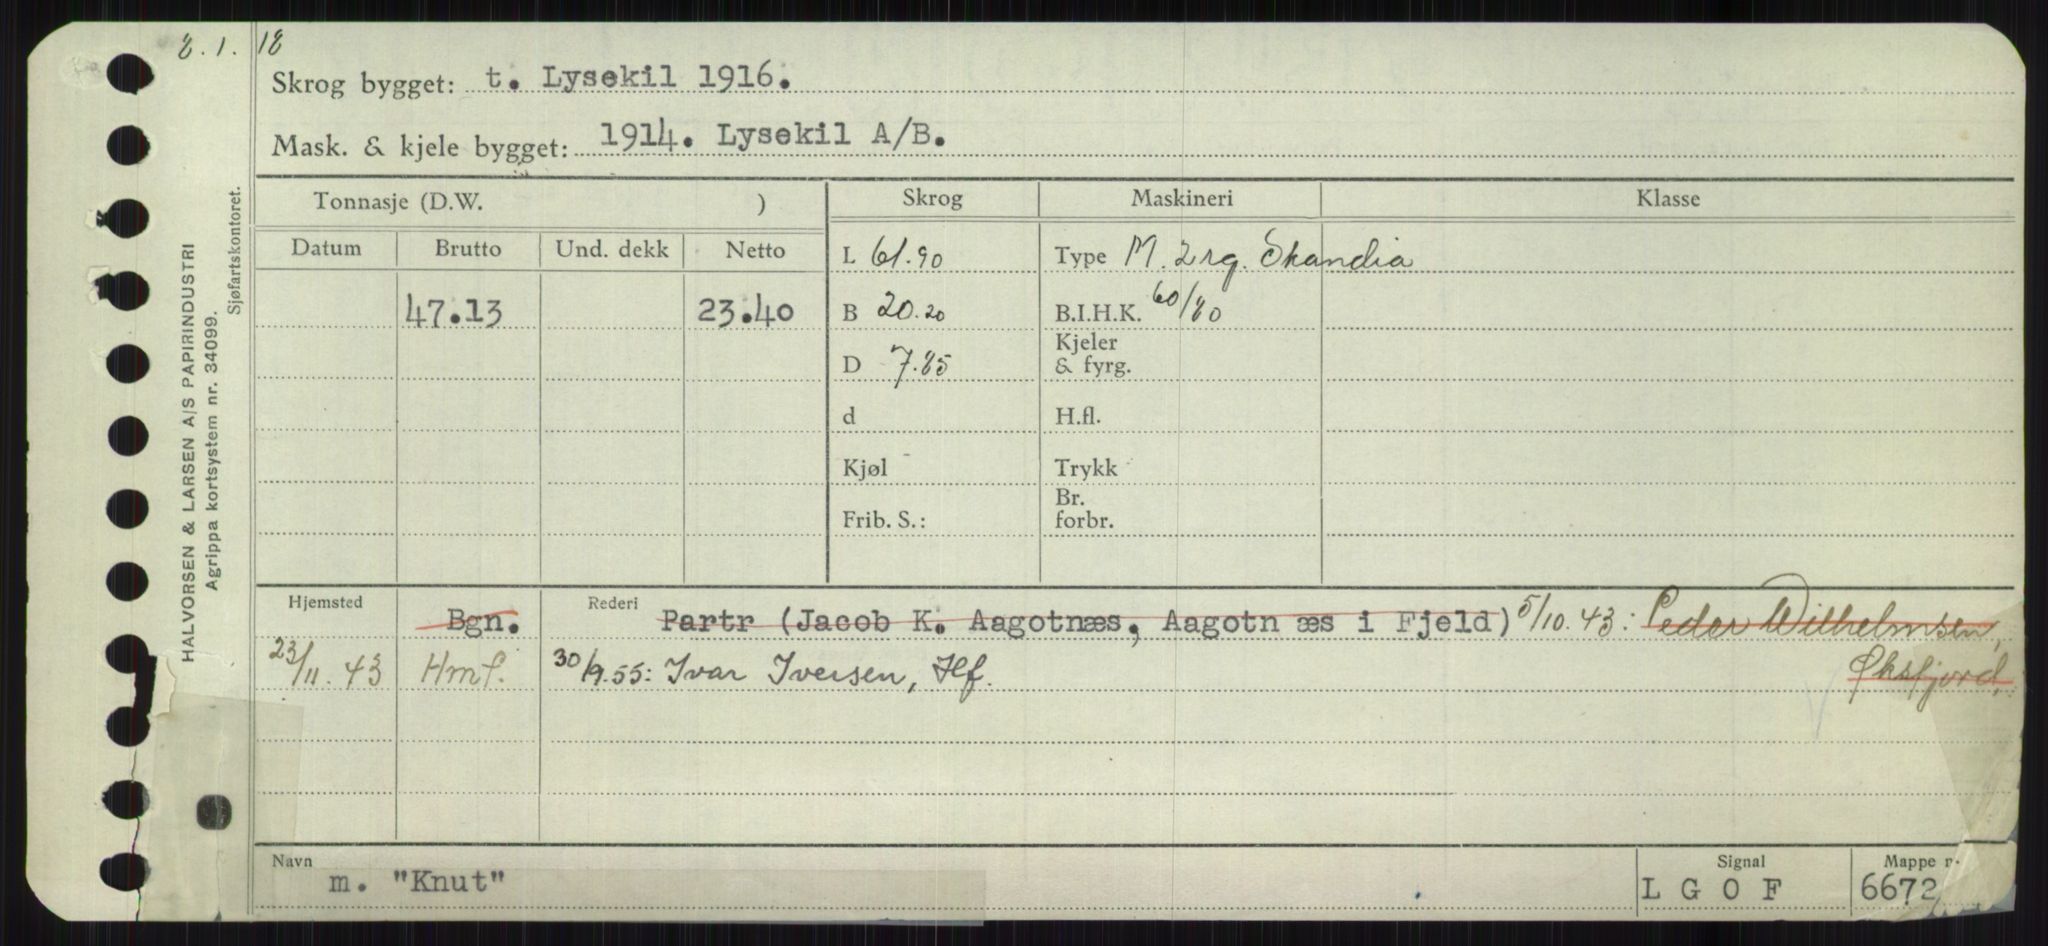 8.1.18
Skrog bygget: t. Lysekil 1916.
Mask. & kjele bygget: 1914. Lysekil A/B.
Tonnasje (D.W. ) Skrog Maskineri Klasse
Datum Brutto Und. dekk Netto L 61.90 Type M. 2 rg. Skandia
47.13 23.40 B 20.20 B.I.H.K. 60/80
D 7.85 Kjeler & fyrg.
d H.fl.
Kjøl Trykk
Frib. S.: Br. forbr.
Hjemsted Bgn. Rederi Partr (Jacob K. Aagotnæs, Aagotn æs i Fjeld) 5/10.43: Peder Wilhelmsen,
Øksfjord.
23/11.43 Hmf. 30/9.55: Ivar Iversen, Hf.
Navn m. "Knut" Signal L G O F Mappe n 6672
HALVORSEN & LARSEN A/S PAPIRINDUSTRI
Agrippa kortsystem nr. 34099.
Sjøfartskontoret.